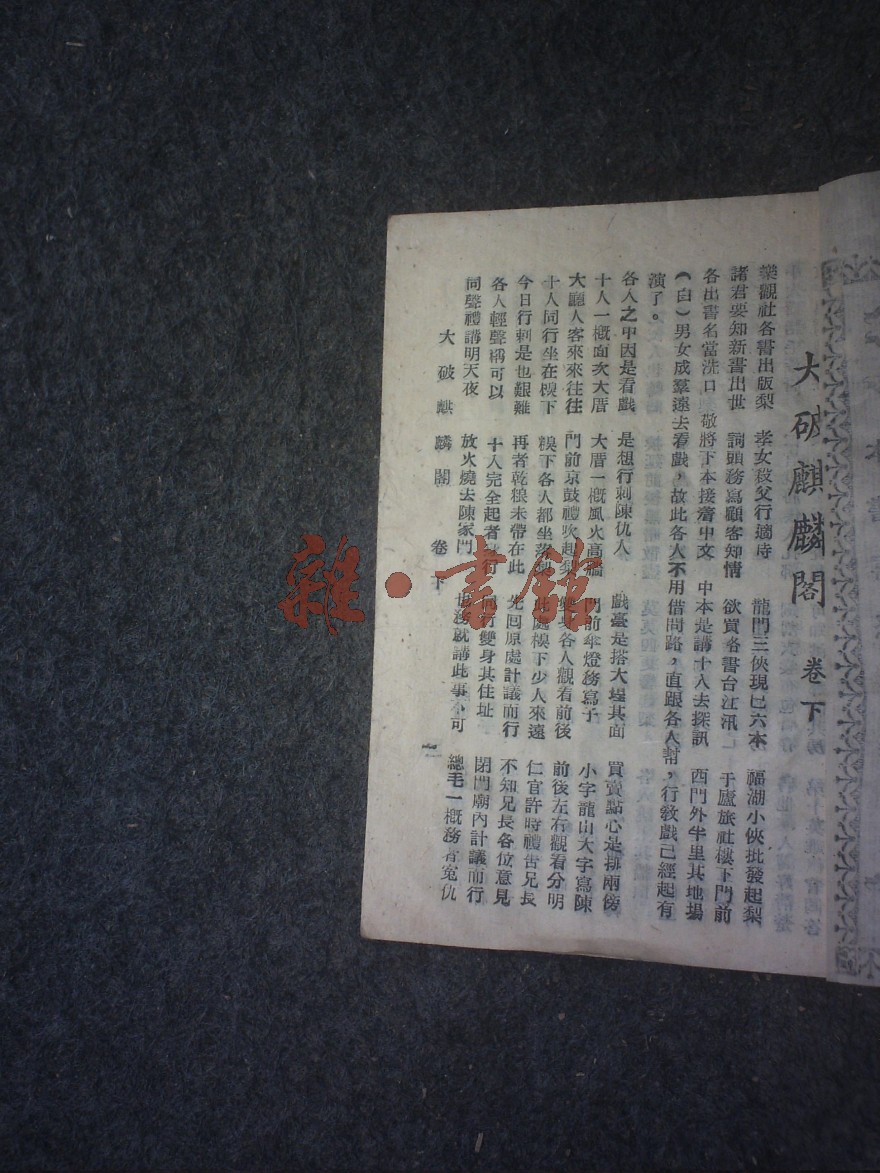 大破麒麟閣 卷下
樂觀社各書出版梨 孝女殺父行適時 龍門三俠現已六本 福湖小俠批發起梨
諸君要知新書出世 詞頭務寫顧客知情 欲買各書台江汛一 于廬旅社樓下門前
各出書名當洗口 敬將下本接著中文 中本是講十人去探訊 西門外半里其地場
(白)男女成羣遠去看戲，故此各人不用借問路，直跟各人幫，行敎戲已經起有
演了。
各人之中因是看戲 是想行刺陳仇人 戲臺是搭大埕其面 買賣點心是排兩傍
十人一概面次大厝 大厝一概風火高牆 門前傘燈務寫子 小字龍山大字寫陳
大廳人客來來往往 門前京鼓禮吹起 各人觀看前後 前後左右觀看分明
十人同行坐在模下 模下各人都坐落 處模下少人來遠 仁官許時禮告兄長
今日行刺是也艱難 再者乾粮未帶在此 先回原處計議而行 不知兄長各位意見
各人輕聲稱可以 十人完全起者行 同行雙身其住址 閉門廟內計議而行
同聲禮講明天夜 放火燒去陳家門 就講此事不可 總毛一概務者寃仇
大破麒麟閣 卷下 一
雜·書館